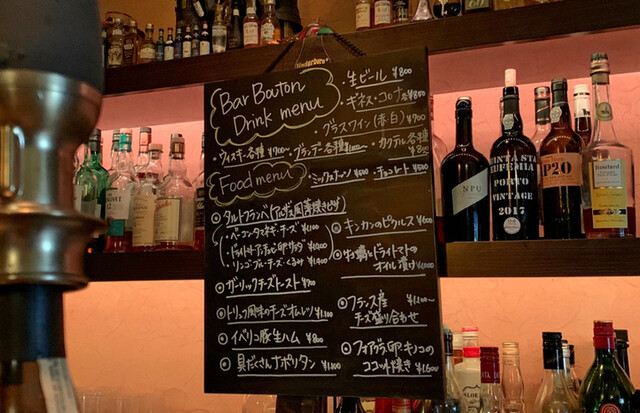 Bar Bouton
Drink menu
・生ビール ¥800
・ギネス・コロナ 各¥850
・グラスワイン(赤・白) ¥900
・ウィスキー各種 ¥900〜 ・ブランデー各種 ¥1000〜 ・カクテル各種
Food menu
・ミックスナッツ ¥500 ・チョコレート ¥500
◎タルトフランベ(アルザス風薄焼きピザ)
・ベーコンタマネギ・チーズ ¥1,100
・リンゴ・ブルーチーズ・くるみ ¥1,400
◎ガーリックチーズトースト ¥700
◎トリュフ風味のチーズオムレツ ¥1,100
◎イベリコ豚生ハム ¥800
◎具だくさんナポリタン ¥1,100
◎キンカンのピクルス ¥600
◎牡蠣とドライトマトの
オイル漬け
◎フランス産 ¥1,100〜
チーズ盛り合わせ
◎フォアグラ・卵・キノコの
ココット焼き ¥1,600
NPU
QUINTA STA
EUFEMIA
PORTO
VINTAGE
2017
P20